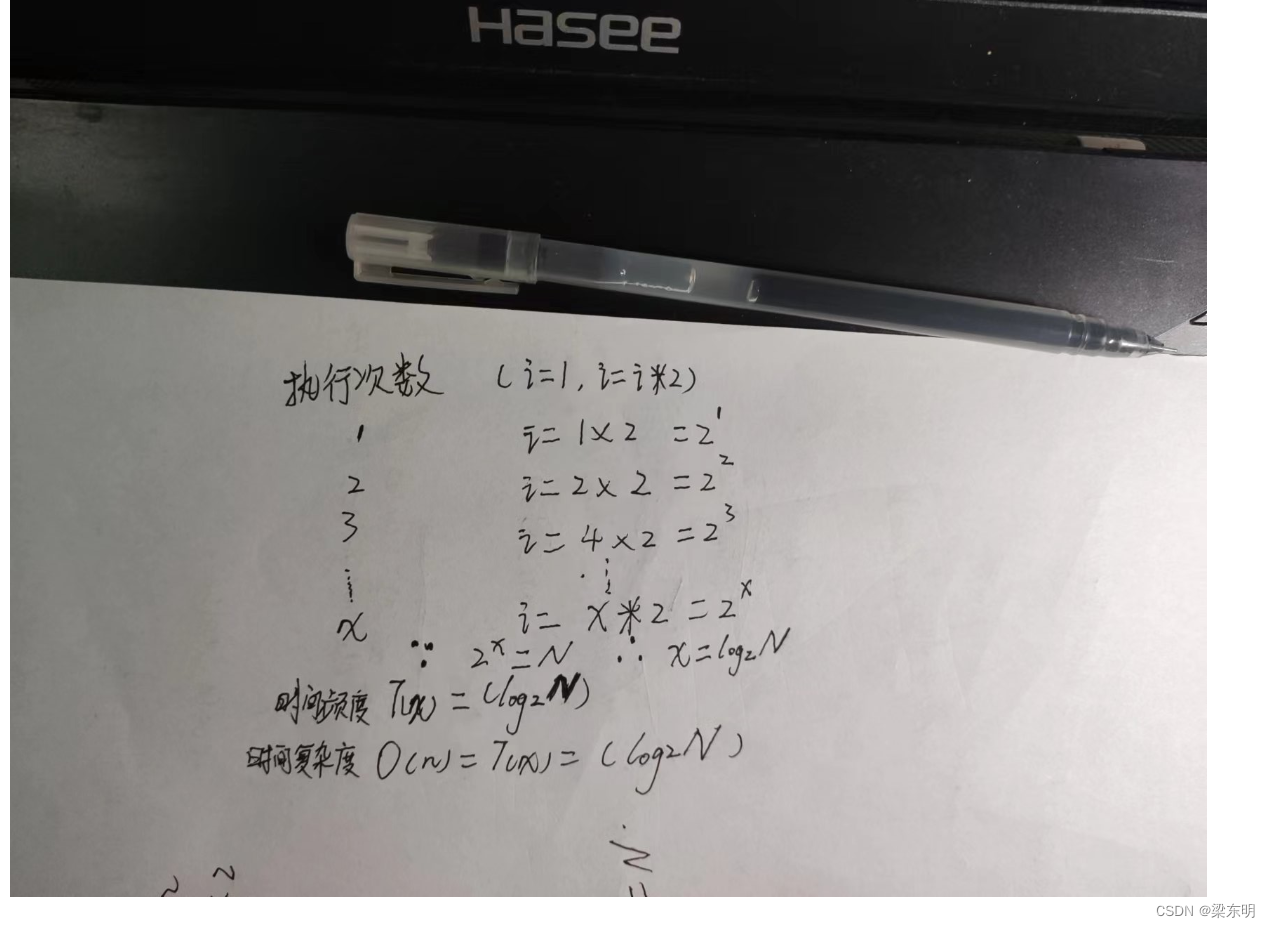 Hasee
执行次数 (i=1, i=i*2)
1 i=1×2 =2¹
2 i=2×2 =2²
3 i=4×2 =2³
⋮ ⋮
x i= x*2 =2ˣ
∵ 2ˣ=N ∴ x=log₂N
时间频度 T(x) = (log₂N)
时间复杂度 O(n) = T(x) = (log₂N)
CSDN @梁东明